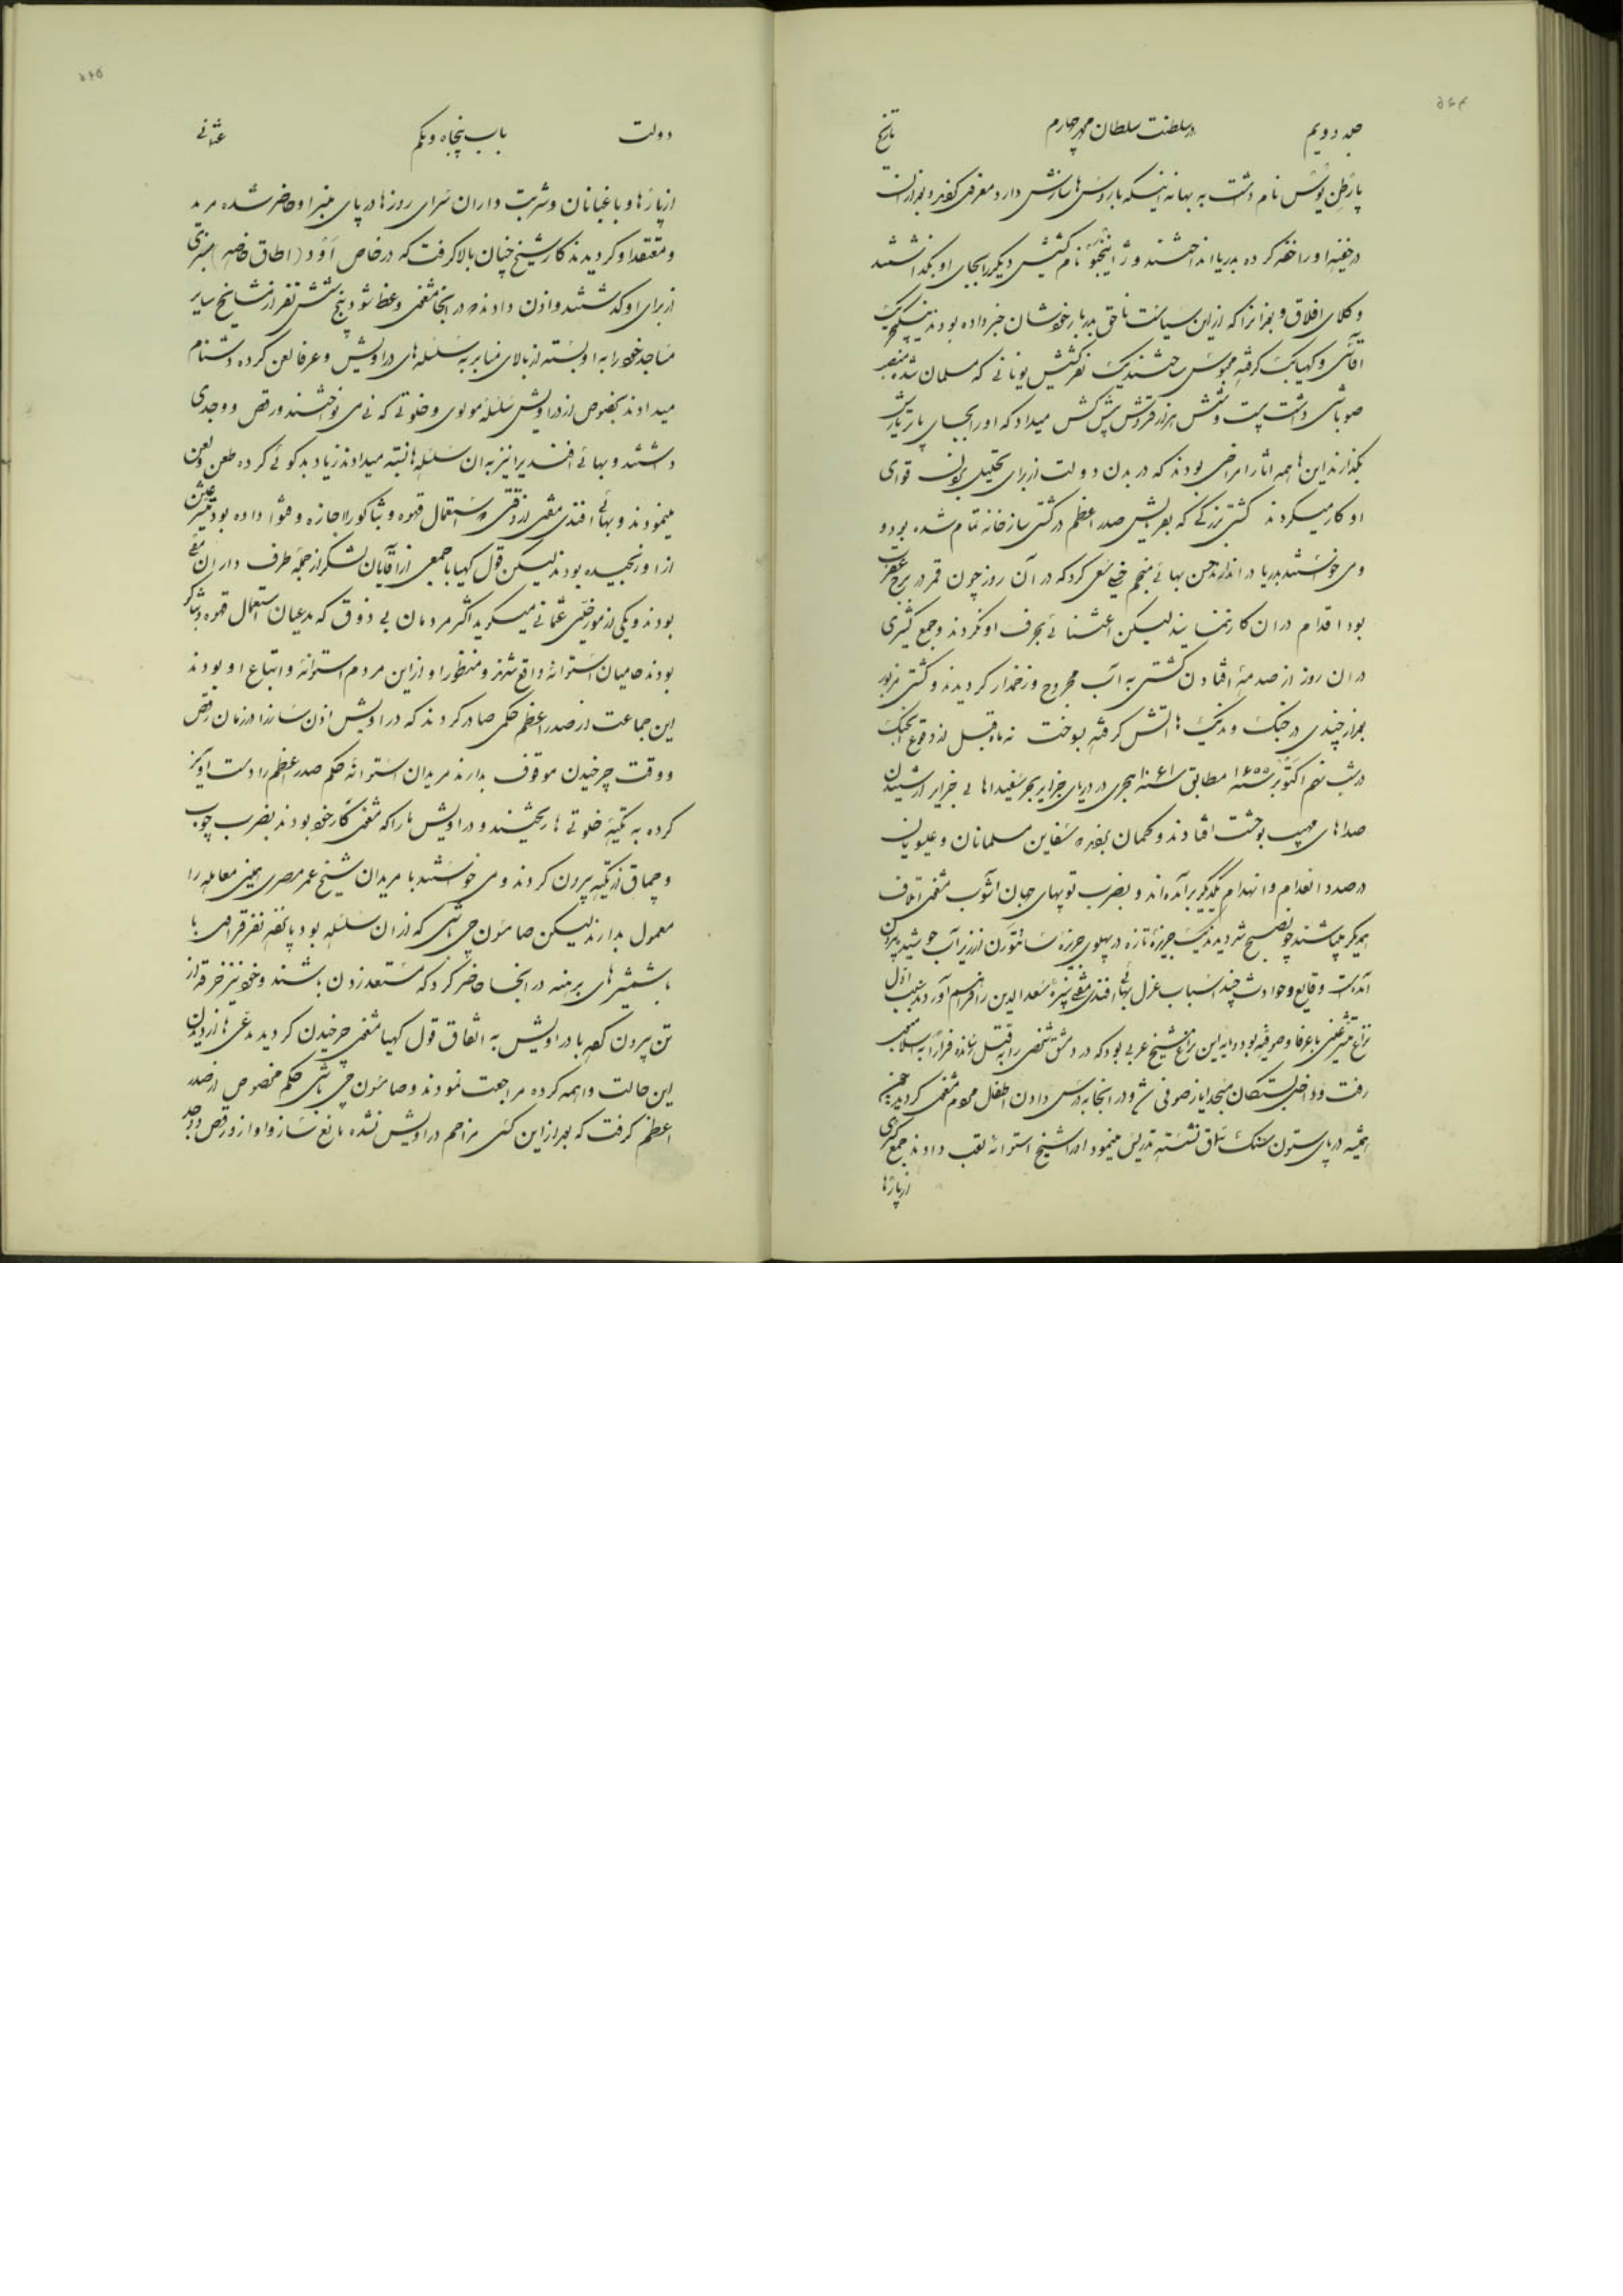 ۵۶۴
جلد دویم در سلطنت سلطان محمد چهارم تاریخ
پارطن یوس نام داشت به بهانه اینکه با روس‌ها سازش دارد معزولی کفرد بعد از آن
در خفیه او را خفه کرده بدریا انداختند و نام کشیش دیگر را بجای او بگذاشتند
وکلای افلاق و بغدانرا که از این سیاست ناحق بدربار خودشان خبر داده بودند ینکیچریک
آقاسی و کهیابک گرفته محبوس ساختند یک نفر کشیش یونانی که مسلمان شده منصب
صوباشی داشت بیست و شش هزار قروش پیش کش میداد که او را بجای پاتریارش
بگذارند این‌ها همه آثار امراضی بودند که در بدن دولت از برای تحلیل بردن قوای
او کار میکردند کشتی بزرگی که بفرمایش صدر اعظم در کشتی سازخانه تمام شده بود و
می خواستند بدریا در اندازند حسن بهائی منجم خیلی سعی کرد که در آن روز چون قمر در برج عقرب
بود اقدام در ان کار ننمایند لیکن اعتنائی بحرف او نکردند و جمع کثیری
در ان روز از صدمهٔ افتادن کشتی به آب مجروح و زخمدار گردیدند و کشتی مزبور
بعد از چندی در جنگ وندیک‌ها آتش گرفته بسوخت نه ماه قبل از وقوع جنگ
در شب نهم اکتوبر سنه ۱۶۵۵ مطابق سنه ۱۰۶۱ هجری در دریای جزایر بحر سفید اهالی جزایر از شنیدن
صداهای مهیب بوحشت افتادند و گمان بفرده سفاین مسلمانان و عیسویان
در صدد انعدام و انهدام یکدیگر برآمده‌اند و بضرب توپهای جهان آشوب مشغول اتلاف
همدیگر میباشند چون صبح شد دیدند یک جزیره تازه در پهلوی جزیره سانتورن از زیر آب جوشیده بیرون
آمده است وقایع و حوادث چند اسباب عزل بهائی افندی مفتی نبیرهٔ سعدالدین را فراهم آورد سبب اول
نزاع متشرعین با عرفا و صوفیه بود و مایه این نزاع شیخ عربی بود که در دمشق شخصی را به قتل رسانده فراراً به اسلامبول
رفت و داخل بستگان مسجد ایاز صوفی شد و در انجا به درس دادن اطفال مردم مشغول گردید چون
همیشه در پای ستون سنگ سماق نشسته تدریس مینمود او را شیخ استوانه لقب دادند جمع کثیری
از پاژها
۵۶۵
دولت باب پنجاه و یکم عثمانی
از پاژها و باغبانان و شربت داران سرای روزها در پای منبر او حاضر شده مرید
و معتقد او گردیدند کار شیخ چنان بالا گرفت که در خاص اود (اطاق خاصه) منبری
از برای او گذاشتند و اذن دادند که در انجا مشغول وعظ شود پنج شش نفر از مشایخ سایر
مساجد خود را به او بسته از بالای منابر به سلسله‌های دراویش و عرفا لعن کرده دشنام
میدادند بخصوص از دراویش سلسلهٔ مولوی و خلوتی که نی می نواختند و رقص و وجدی
داشتند و بهائی افندی را نیز به ان سلسله‌ها نسبته میدادند زیاد بدگوئی کرده طعن و لعن
مینمودند و بهائی افندی مفتی از وقتی که استعمال قهوه و تنباکو را اجازه و فتوا داده بود متشرعین
از او رنجیده بودند لیکن قول کهیا با جمعی از آقایان لشکر از جمله طرف داران مفتی
بودند و یکی از مورخین عثمانی میگوید اکثر مردمان بی ذوق که مدعیان استعمال قهوه و تنباکو
بودند حامیان استوانه واقع شدند و منظور او از این مردم استوانه و اتباع او بودند
این جماعت از صدر اعظم حکمی صادر کردند که دراویش اذن ساز را در زمان رقص
و وقت چرخیدن موقوف بدارند مریدان استوانه حکم صدر اعظم را دست آویز
کرده به تکیهٔ خلوتی ها ریختند و دراویش ها را که مشغول کار خود بودند بضرب چوب
و چماق از تکیه بیرون کردند و می خواستند با مریدان شیخ عمر مصری همین معامله را
معمول بدارند لیکن صامسون چی باشی که از ان سلسله بود پانصد نفر قراول با
با شمشیرهای برهنه در انجا حاضر کرد که مستعد زدن باشند و خود نیز خرقه از
تن بیرون کرده با دراویش به اتفاق قول کهیا مشغول چرخیدن گردید مدعی‌ها از دیدن
این حالت واهمه کرده مراجعت نمودند و صامسون چی باشی حکم مخصوص از صدر
اعظم گرفت که بعد از این کسی مزاحم دراویش نشده مانع ساز و آواز و رقص و وجد